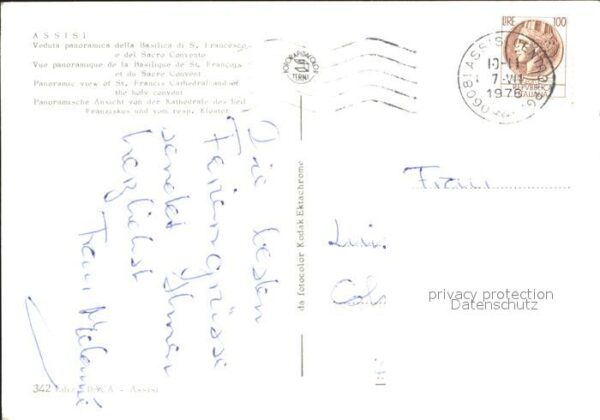 ASSISI
Veduta panoramica della Basilica di S. Francesco
e del Sacro Convento
Vue panoramique de la Basilique de St. François
et du Sacre Convent
Panoramic view of St. Francis Cathedral and of
the holy convent
Panoramische Ansicht von der Kathedrale des heil.
Franziskus und vom resp. Kloster
LIRE 100
REPVBBLICA
ITALIANA
06081 ASSISI
10-11
7-VII
1976
TERNI
Die besten
Feriengrüsse
sendet Ihnen
herzlichst
Frau
da fotocolor Kodak Ektachrome
Frau
privacy protection
Datenschutz
342
Assisi